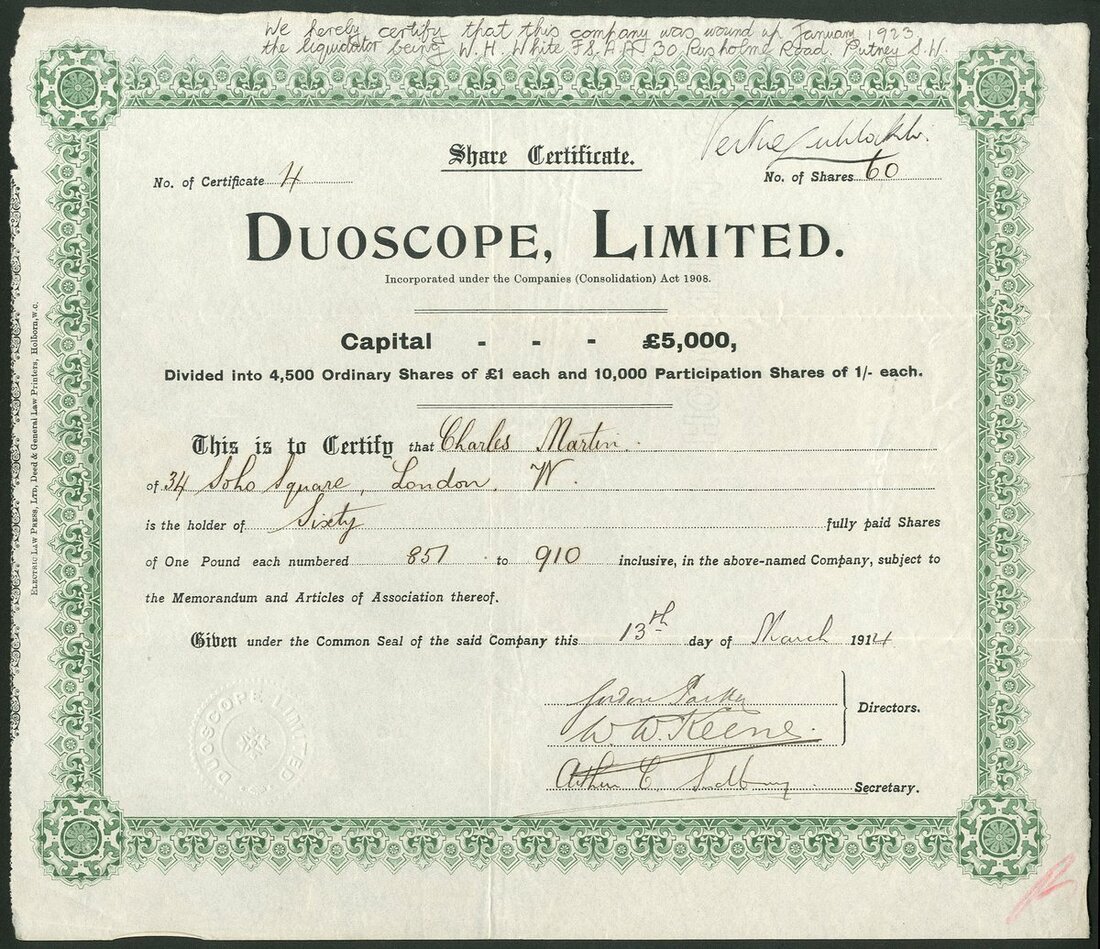 We hereby certify that this company was wound up January 1923,
the liquidator being W. H. White F.S.A.A. 30 Rusholme Road. Putney S.W.
Share Certificate.
No. of Certificate 4
No. of Shares 60
DUOSCOPE, LIMITED.
Incorporated under the Companies (Consolidation) Act 1908.
Capital - - - £5,000,
Divided into 4,500 Ordinary Shares of £1 each and 10,000 Participation Shares of 1/- each.
This is to Certify that Charles Martin.
of 34 Soho Square, London, W.
is the holder of Sixty fully paid Shares
of One Pound each numbered 851 to 910 inclusive, in the above-named Company, subject to
the Memorandum and Articles of Association thereof.
Given under the Common Seal of the said Company this 13th day of March 1914
Gordon Parker
W. W. Keene.
Directors.
Arthur C Sudbury
Secretary.
DUOSCOPE LIMITED
ELECTRIC LAW PRESS, LTD, Deed & General Law Printers, Holborn, W.C.